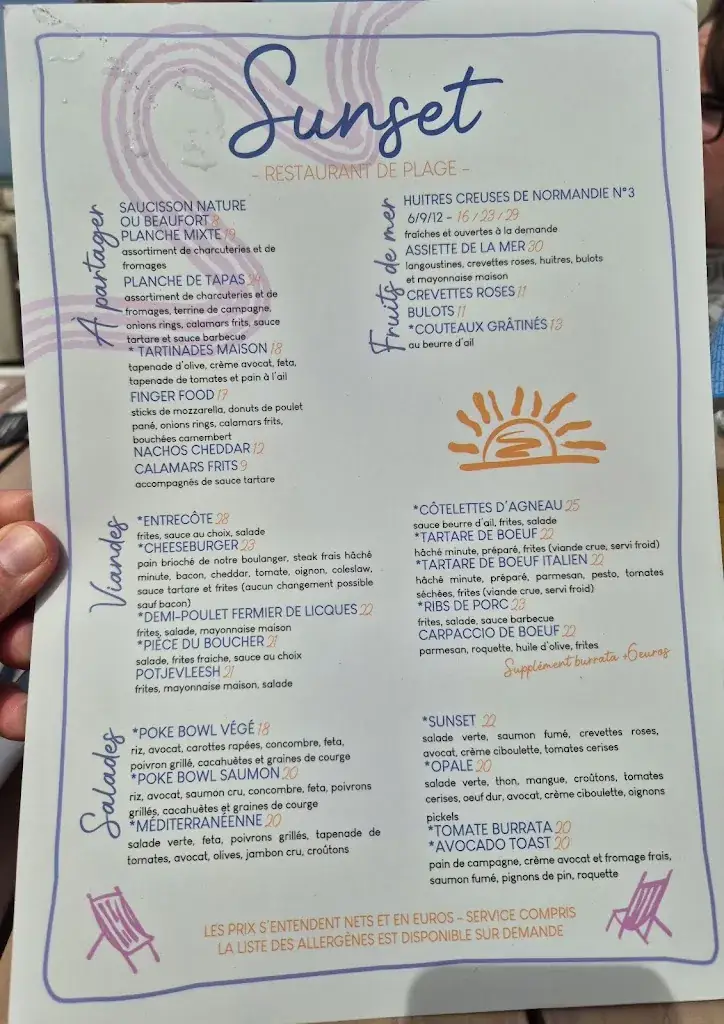 Sunset
- RESTAURANT DE PLAGE -
À partager
SAUCISSON NATURE
OU BEAUFORT 8
PLANCHE MIXTE 19
assortiment de charcuteries et de
fromages
PLANCHE DE TAPAS 24
assortiment de charcuteries et de
fromages, terrine de campagne,
onions rings, calamars frits, sauce
tartare et sauce barbecue
* TARTINADES MAISON 18
tapenade d'olive, crème avocat, feta,
tapenade de tomates et pain à l'ail
FINGER FOOD 17
sticks de mozzarella, donuts de poulet
pané, onions rings, calamars frits,
bouchées camembert
NACHOS CHEDDAR 12
CALAMARS FRITS 9
accompagnés de sauce tartare
Fruits de mer
HUITRES CREUSES DE NORMANDIE N°3
6/9/12 - 16 / 23 / 29
fraîches et ouvertes à la demande
ASSIETTE DE LA MER 30
langoustines, crevettes roses, huitres, bulots
et mayonnaise maison
CREVETTES ROSES 11
BULOTS 11
*COUTEAUX GRÂTINÉS 13
au beurre d'ail
Viandes
*ENTRECÔTE 28
frites, sauce au choix, salade
*CHEESEBURGER 23
pain brioché de notre boulanger, steak frais hâché
minute, bacon, cheddar, tomate, oignon, coleslaw,
sauce tartare et frites (aucun changement possible
sauf bacon)
*DEMI-POULET FERMIER DE LICQUES 22
frites, salade, mayonnaise maison
*PIÈCE DU BOUCHER 21
salade, frites fraiche, sauce au choix
POTJEVLEESH 21
frites, mayonnaise maison, salade
*CÔTELETTES D'AGNEAU 25
sauce beurre d'ail, frites, salade
*TARTARE DE BOEUF 22
hâché minute, préparé, frites (viande crue, servi froid)
*TARTARE DE BOEUF ITALIEN 22
hâché minute, préparé, parmesan, pesto, tomates
séchées, frites (viande crue, servi froid)
*RIBS DE PORC 23
frites, salade, sauce barbecue
CARPACCIO DE BOEUF 22
parmesan, roquette, huile d'olive, frites
Supplément burrata +6euros
Salades
*POKE BOWL VÉGÉ 18
riz, avocat, carottes rapées, concombre, feta,
poivron grillé, cacahuètes et graines de courge
*POKE BOWL SAUMON 20
riz, avocat, saumon cru, concombre, feta, poivrons
grillés, cacahuètes et graines de courge
*MÉDITERRANÉENNE 20
salade verte, feta, poivrons grillés, tapenade de
tomates, avocat, olives, jambon cru, croûtons
*SUNSET 22
salade verte, saumon fumé, crevettes roses,
avocat, crème ciboulette, tomates cerises
*OPALE 20
salade verte, thon, mangue, croûtons, tomates
cerises, oeuf dur, avocat, crème ciboulette, oignons
pickels
*TOMATE BURRATA 20
*AVOCADO TOAST 20
pain de campagne, crème avocat et fromage frais,
saumon fumé, pignons de pin, roquette
LES PRIX S'ENTENDENT NETS ET EN EUROS - SERVICE COMPRIS
LA LISTE DES ALLERGÈNES EST DISPONIBLE SUR DEMANDE